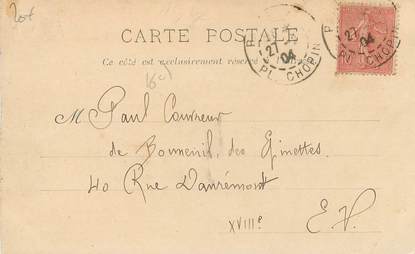 CARTE POSTALE
Ce côté est exclusivement réservé
27
04
PL CHOPIN
27
04
PL CHOPIN
M Paul Couvreur
de Bonneuil, des Ginettes
40 Rue Damrémont
XVIIIe
E.V.